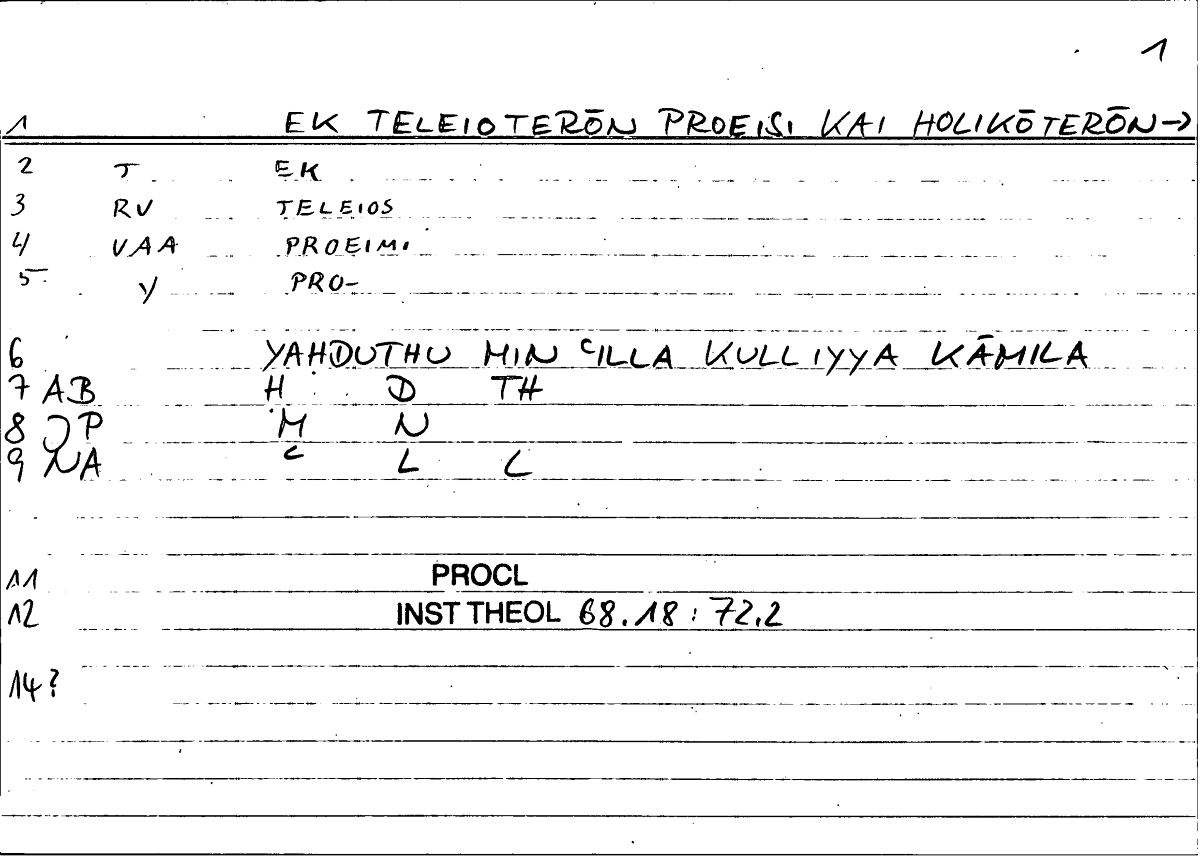 1
1 EK TELEIOTERŌN PROEISI KAI HOLIKŌTERŌN→
2 T EK
3 RV TELEIOS
4 VAA PROEIMI
5 Y PRO-
6 YAHDUTHU MIN ʿILLA KULLIYYA KĀMILA
7 AB H D TH
8 JP M N
9 NA ʿ L L
11 PROCL
12 INST THEOL 68.18 : 72.2
14?